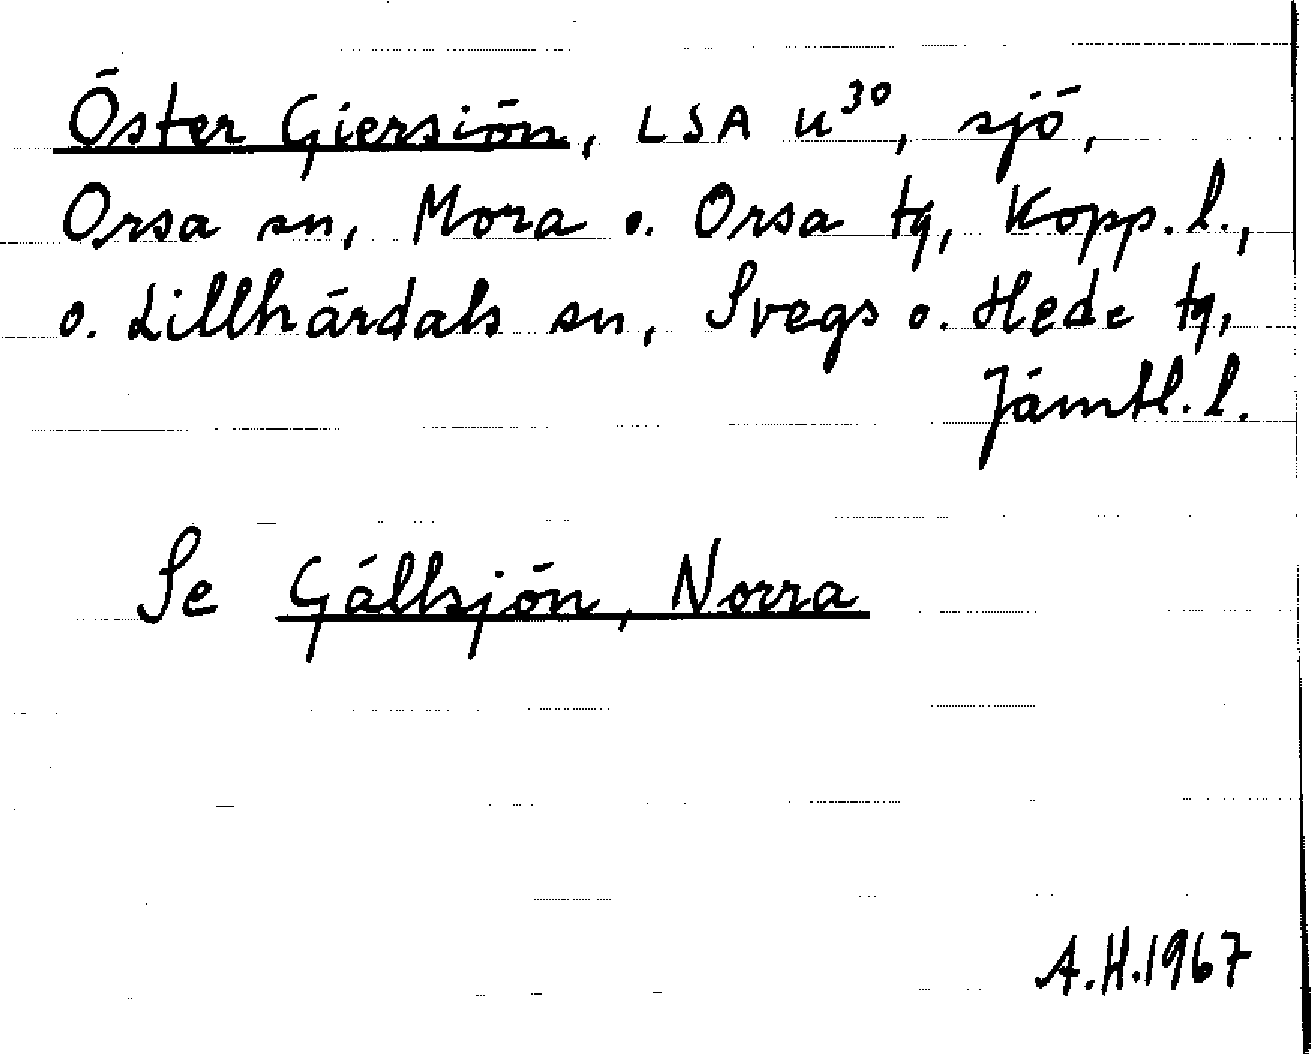 Öster Giersiön, LSA u³⁰, sjö,
Orsa sn, Mora o. Orsa tg, Kopp. l.,
o. Lillhärdals sn, Svegs o. Hede tg,
Jämtl. l.
Se Gällsjön, Norra
A.H.1967